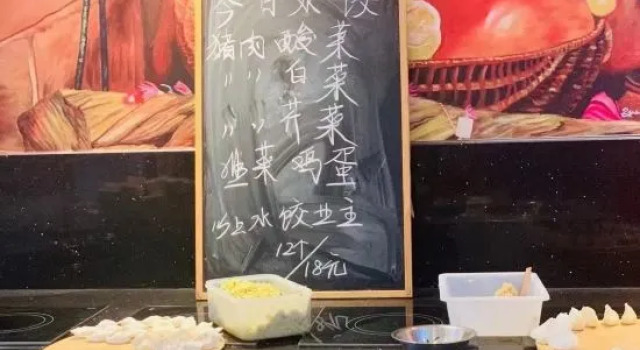 今日水饺
猪肉酸菜
〃〃白菜
〃〃芹菜
韭菜鸡蛋
以上水饺业主
12个/18元